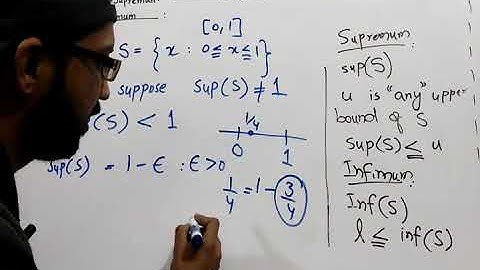 Supremum
mum :
[0, 1]
S = { x : 0 ≦ x ≦ 1 }
suppose Sup(S) ≠ 1
(S) < 1
1/4
0 1
Sup(S) = 1 - ϵ : ϵ > 0
1/4 = 1 - 3/4
Supremum :
sup(S)
u is "any" upper
bound of S
Sup(S) ≦ u
Infimum :
Inf(S)
l ≦ inf(S)